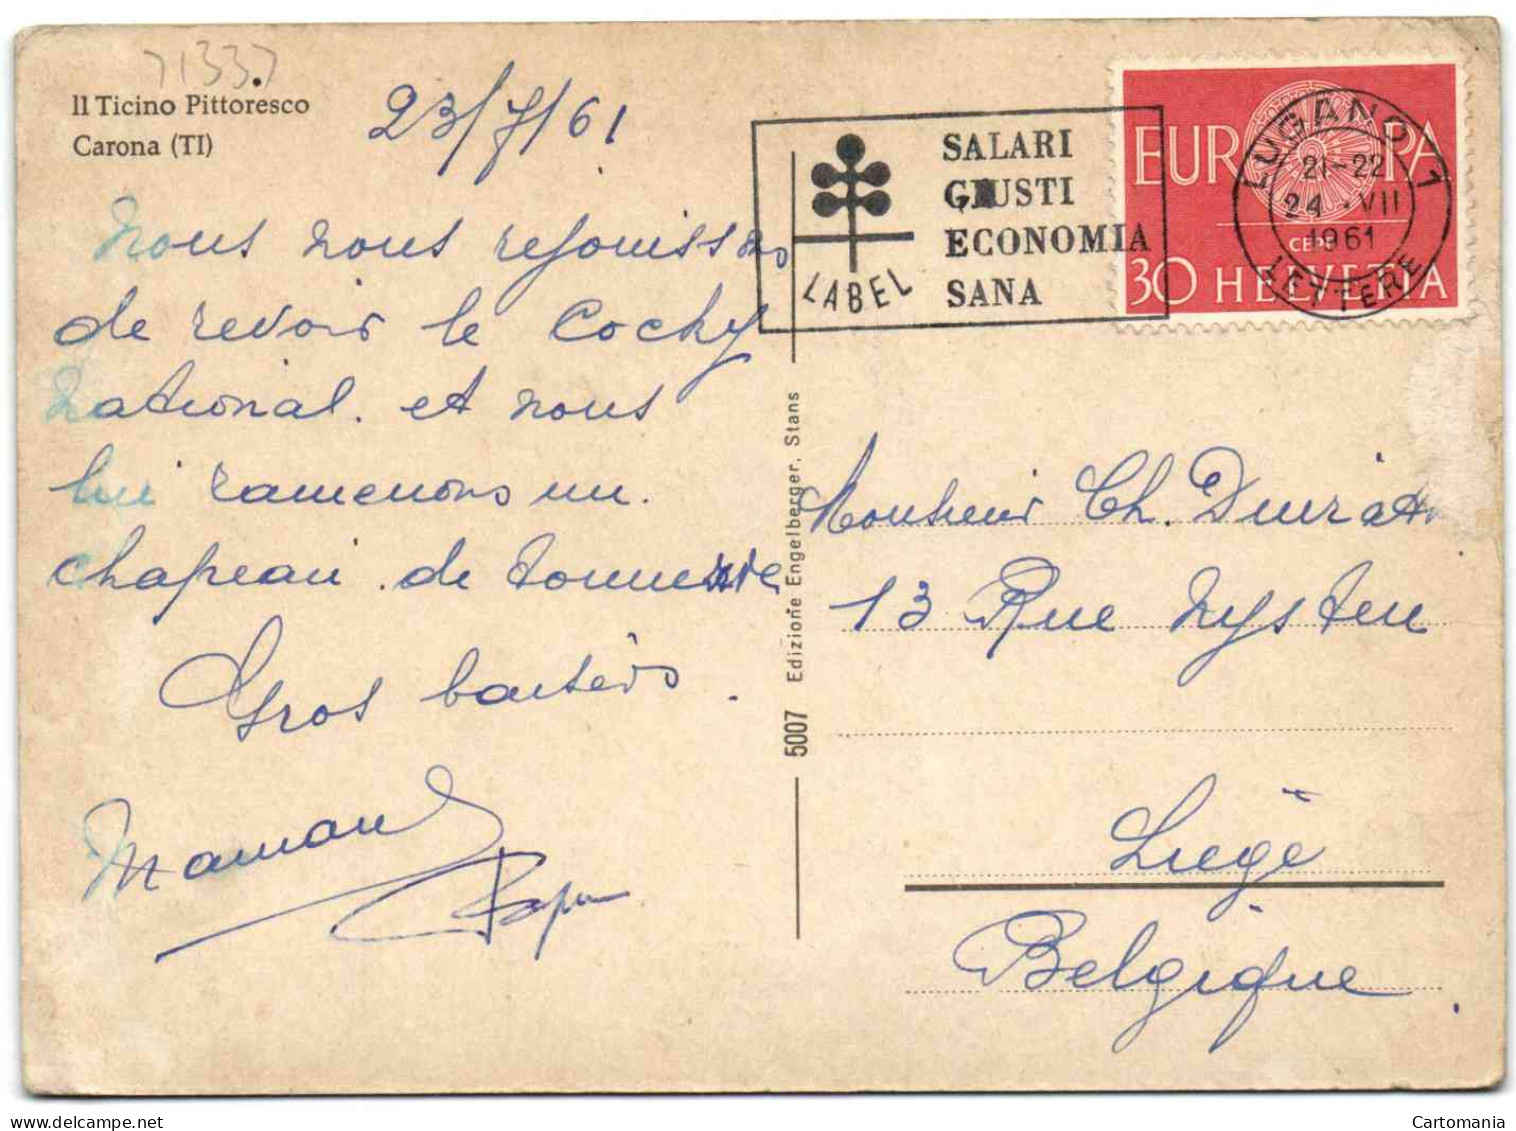 71337
Il Ticino Pittoresco
Carona (TI)
23/7/61
Nous nous rejouissons
de revoir le Cocky
national. et nous
lui ramenons un.
chapeau. de tonnerre
Gros baisers.
Maman
Papa
5007 Edizione Engelberger, Stans
SALARI
GIUSTI
ECONOMIA
SANA
LABEL
EUROPA
CEPT
30 HELVETIA
LUGANO 1
21-22
24.VII
1961
LETTERE
Monsieur Ch.
13 Rue Nysten
Liège
Belgique.
Cartomania